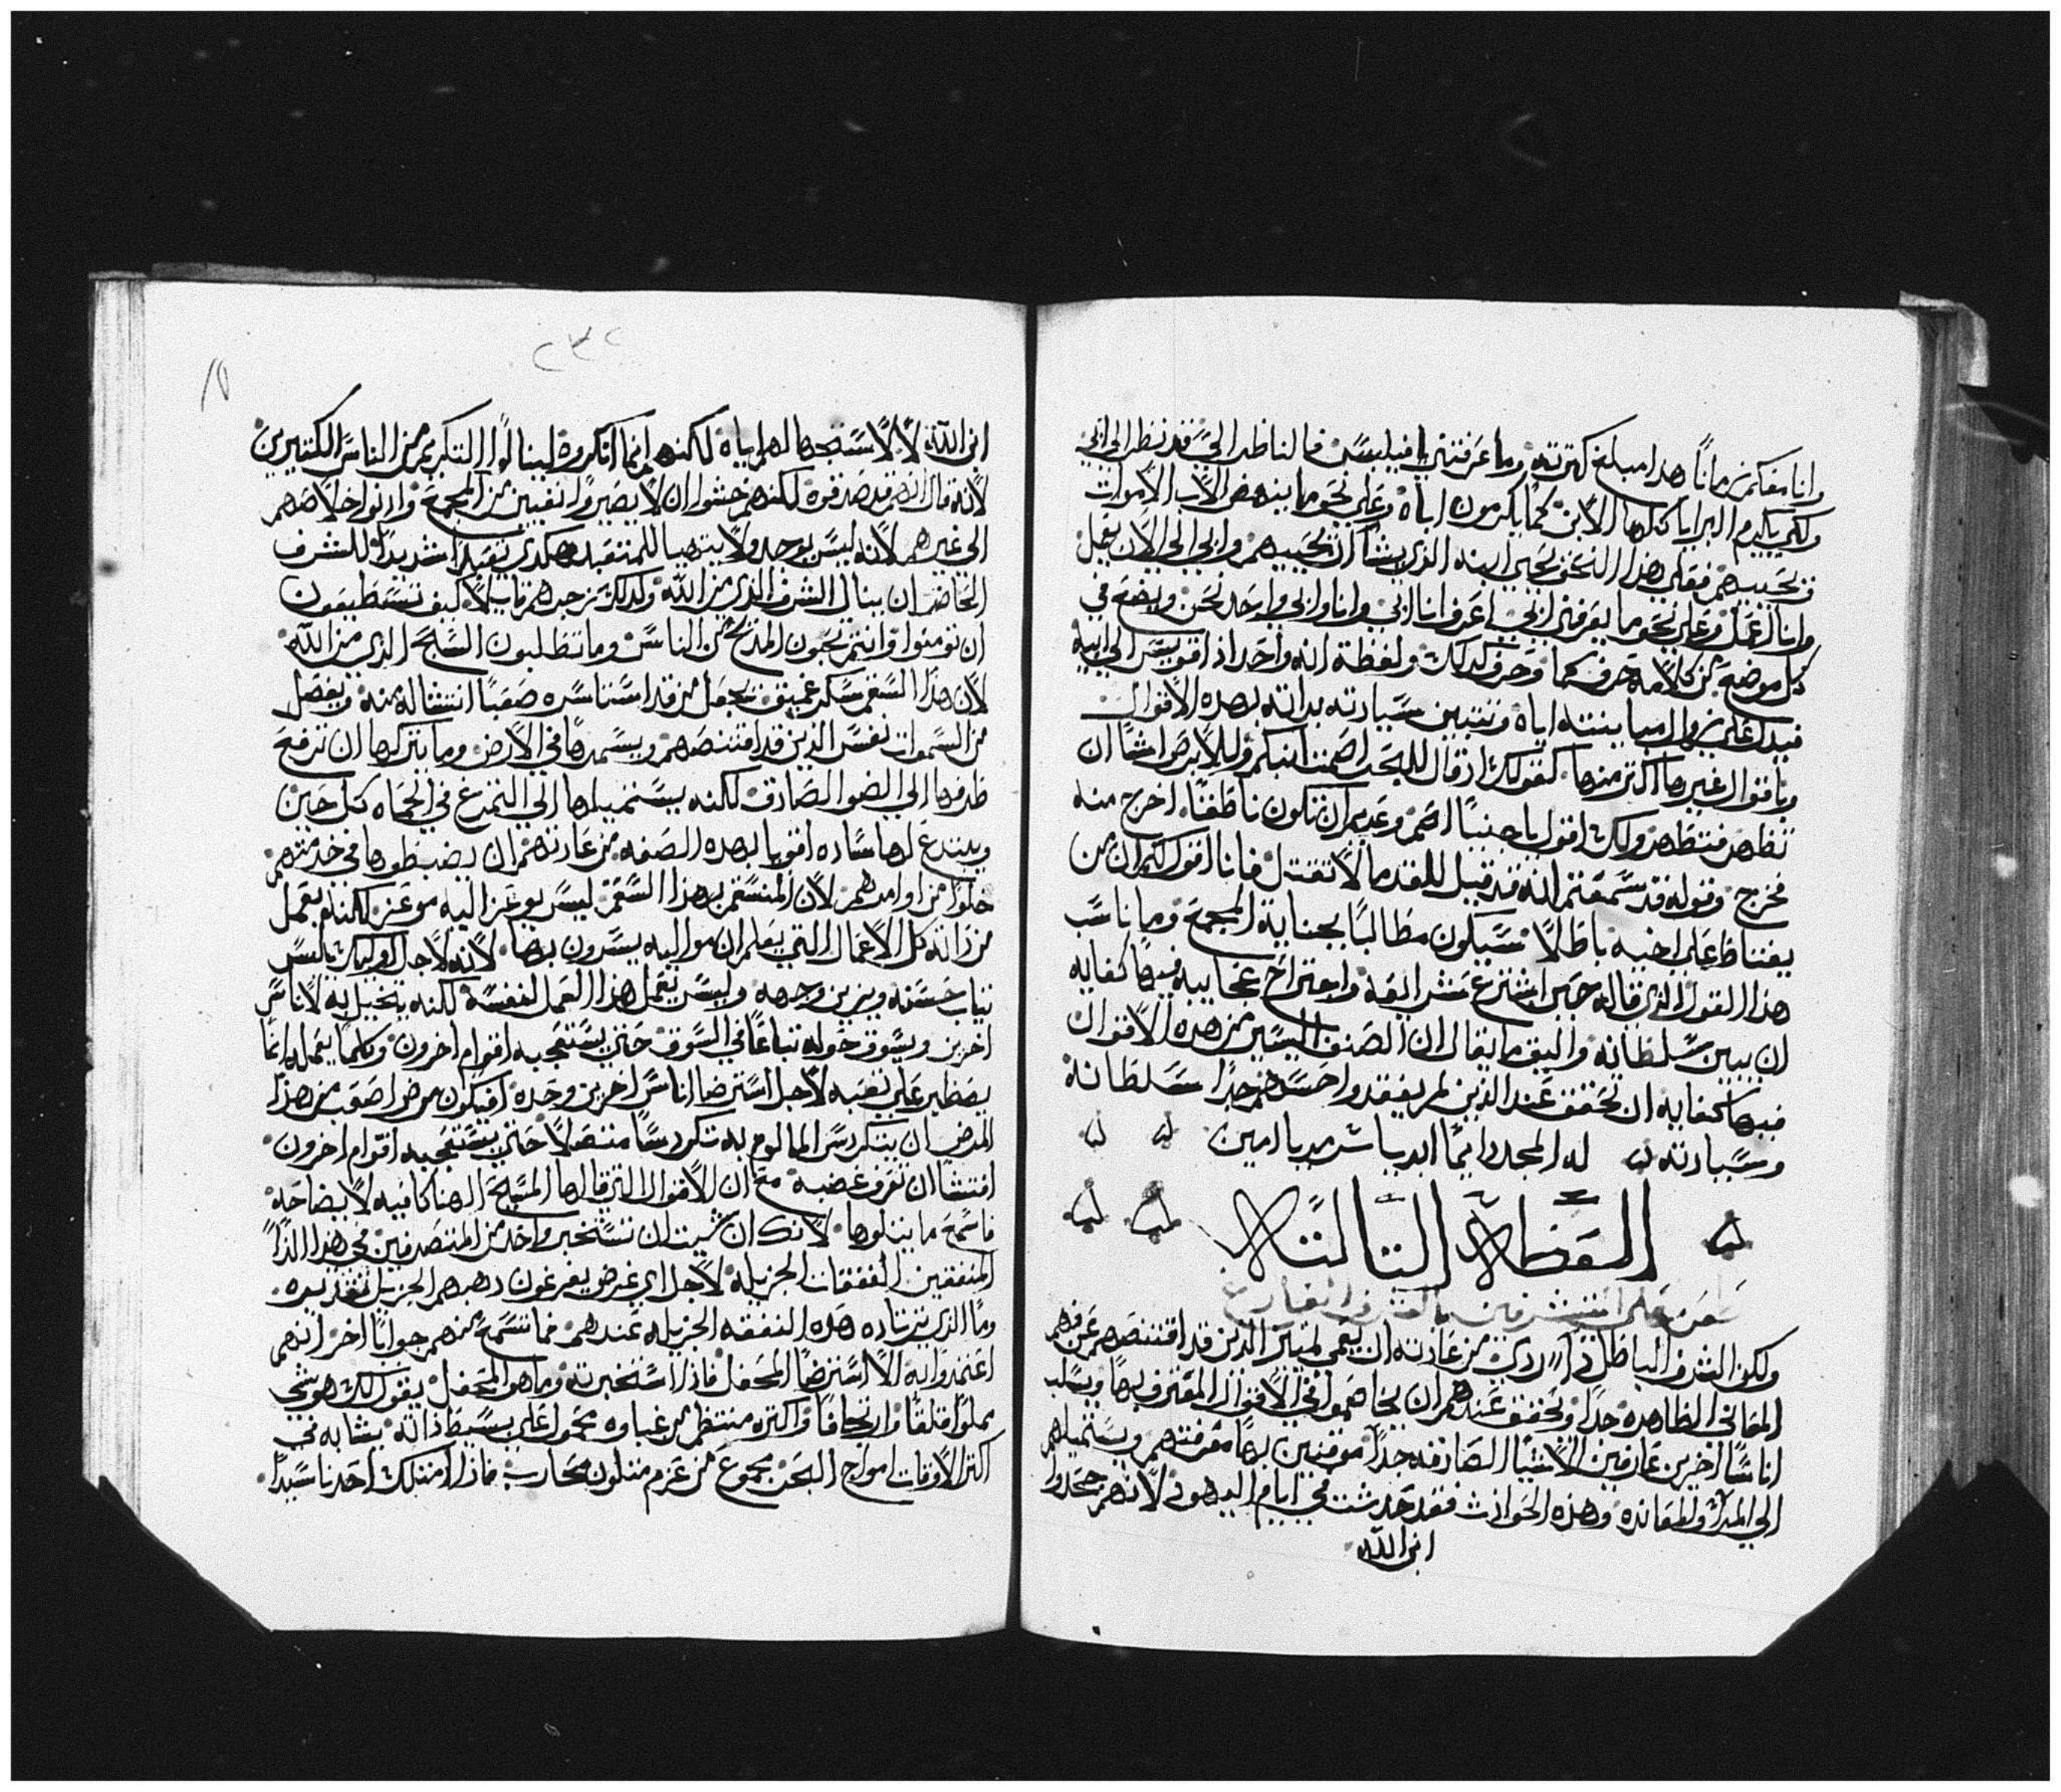 وانا معكم زمانًا هذا مبلغ كثرته وما عرفتني يا فيلبس فالناظر الي قد نظر الى ابي
ولكي يكرم البرايا كلها الابن كما يكرمون اباه وعلى نحو ما ينهض الاب الاموات
ويحييهم فعلى هذا النحو يحيي ابنه الذي يشا ان يحييهم وابي الى الان يعمل
وانا اعمل وعلى نحو ما يعرفني ابي اعرف انا ابي وانا وابي واحد نحن ويضع في
كل موضع من كلامه حرف كما وحرف كذلك ولفظة انه واحد اذا قويس الى ابيه
فيدل على زوال مباينته اياه وتتبين سيادته بذاته بهذه الاقوال
وباقوال غيرها اكثر منها كقولك اذ قال للبحر اصمت انبكم وللابرص اشا ان
تطهر فتطهر ولك اقول يا جنيًا اصم وعديم ان تكون ناطقًا اخرج منه
فخرج وقوله قد سمعتم انه قد قيل للقدما لا تقتل فانا اقول لكم ان من
يغتاظ على اخيه باطلا سيكون مطالبًا بجناية المجمع وما ناسب
هذا القول الذي قاله حين اشترع شرايعه واجتراح عجايبه فيها كفايه
ان يبين سلطانه واليق ما يقال ان الصنف اليسير من هذه الاقوال
فيها كفايه ان تحقق عند الذين لم يفقدوا حسهم جدًا سلطانه
وسيادته له المجد دايمًا ابديا سرمديا امين
العظة الثالثة
طعن على المتشرفين بالشرف الفارغ
ولكن الشرف الباطل ردي من عادته ان يعمي تمييز الذين قد اقتنصهم عن فهم
المعاني الظاهره جدًا وتحقق عندهم ان يخاصموا في الاقوال المعترف بها ويسلب
اناسًا اخرين عارفين الاشيا الصادقه جدًا موقنين بها معرفتهم ويستميلهم
الى المرا ولمعانده وهذه الحوادث فقد حدثت في ايام اليهود لانهم جحدوا
ابن الله
٢٣٢
ابن الله لا لاستجهالهم اياه لكنهم انما انكروه لينالوا التكريم من الناس الكثيرين
لانه قال انهم قد صدقوه لكنهم خشوا ان لا يصيروا نفيين من المجمع وادنوا خلاصهم
الى غيرهم لانه ليس يوجد ولا يتهيا للمتعبد هكدى تعبدًا شديدًا للشرف
الحاضر ان ينال الشرف الذي من الله ولذلك زجرهم قايلا كيف تستطيعون
ان تومنوا وانتم تحبون المدح من الناس وما تطلبون السبح الذي من الله
لان هذا السقم سكر عميق يجعل من قد استاسره صعبًا انتشاله منه ويفصل
من السموات نفس الذين قد اقتنصهم ويسمرها في الارض وما يتركها ان ترفع
طرفها الى الضو الصادق لكنه يستميلها الى التمرغ في الحماه كل حين
ويبتدع لها ساده اقويا بهذه الصفه من عادتهم ان يضبطوها في خدمتهم
خلوًا من اوامرهم لان المنسقم بهذا السقم ليس يوعز اليه موعز لكنه يعمل
من ذاته كل الاعمال التي يعلم ان مواليه يسرون بها لانه لاجل اوليك يلبس
ثياب حسنه ويزين وجهه وليس يعمل هذا العمل لنفسه لكنه يتخيل به لاناس
اخرين ويسوق حوله تباعًا في السوق حتى يستعجبه اقوام اخرون وكلما يعمله انما
يصطبر على تعبه لاجل استرضا اناس اخرين وحده افيكون مرض اصعب من هذا
المرض ان يتكردس المالوم به تكردسًا متصلا حتى يستعجبه اقوام اخرون
افتشا ان تعرف عصبه مع ان الاقوال التي قالها المسيح الهنا كافيه لايضاحه
فاسمع ما يتلوها لانك ان شيت ان تستخبر واحد من المتصرفين في هذا الذا
المنفقين النفقات الجزيله لاجل اي غرض يفرغون ذهبهم الجزيل تقديره
وما الذي ترتاده هذه النفقه الجزيله عندهم فما تسمع منهم جوابًا اخر انهم
اعتمدوا به الا استرضا المحفل فاذا استخبرته وما هو المحفل يقول لك هو شي
مملوًا قلقًا وارتجافًا واكثره منتظم من غباوه محمولا على بسيط ذاته يشابه في
اكثر الاوقات امواج البحر مجموع من عزم متلون محارب فاذا امتلك احدنا سيدًا